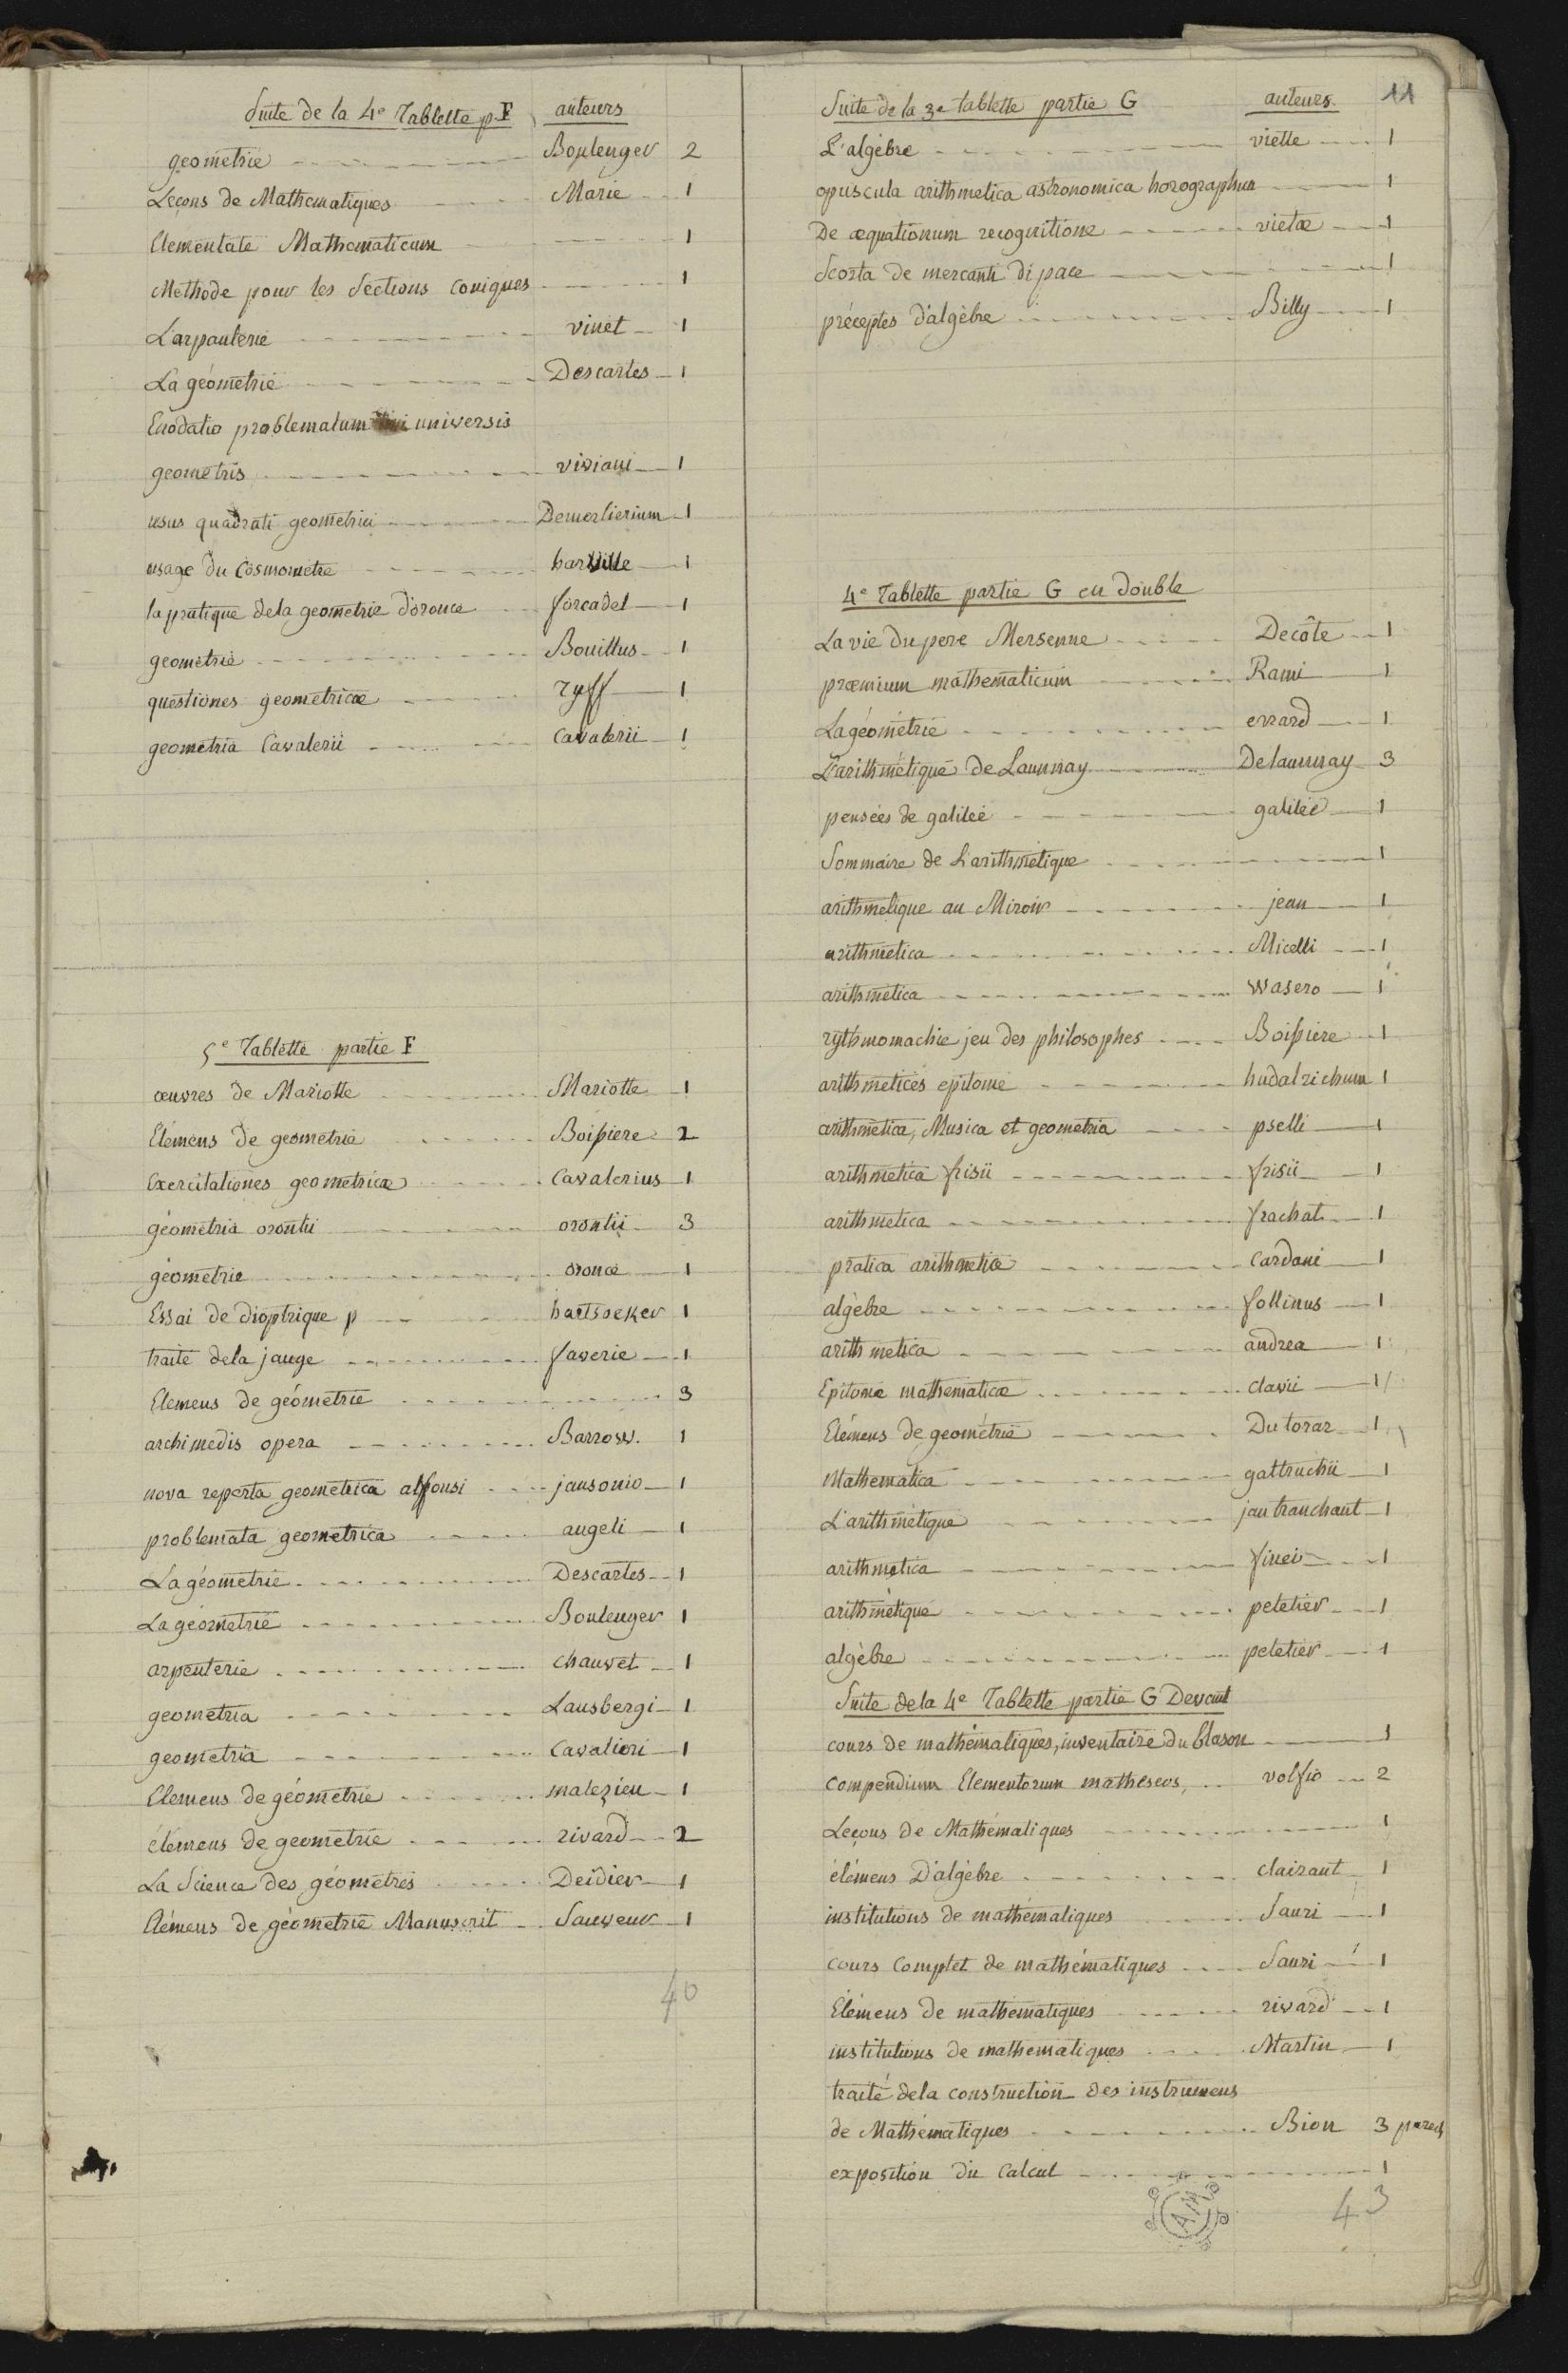 Suite de la 4e Tablette p. F auteurs
geometrie Boulenger 2
Leçons de Mathematiques Marie 1
Elementale Mathematicum 1
Methode pour les Sections coniques 1
L'arpanterie vinet 1
La géometrie Descartes 1
Enodatio problematum universis
geometris viviani 1
usus quadrati geometrici Demerlierium 1
usage du Cosmometre 1
la pratique de la geometrie d'oronce forcadel 1
geometrie Bouillus 1
questiones geometricæ ryff 1
geometria Cavalerii Cavalerii 1
5e Tablette partie F
œuvres de Mariotte Mariotte 1
Elémens de geometrie Boissiere 2
Exercitationes geometricæ Cavalerius 1
géometria orontii orontii 3
géometrie oronce 1
Essai de dioptrique p hartsoeker 1
traité de la jauge faverie 1
Elemens de géometrie 3
archimedis opera Barrow. 1
nova reperta geometrica alfonsi jansonio 1
problemata geometrica angeli 1
La géometrie Descartes 1
La géometrie Boulenger 1
arpenterie chauvet 1
geometria Lansbergi 1
geometria Cavalieri 1
Elemens de géometrie malezieu 1
élémens de geometrie rivard 2
La Science des géometres Deidier 1
Elémens de géometrie Manuscrit Sauveur 1
40
11
Suite de la 3e tablette partie G auteurs.
L'algèbre viette 1
opuscula arithmetica astronomica horographia 1
De æquationum recognitione vietæ 1
Scorta de mercanti di pace 1
préceptes d'algèbre Billy 1
4e Tablette partie G en double
La vie du pere Mersenne Decôte 1
præmium mathematicum Rami 1
La géométrie errard 1
L'arithmétique de Launnay Delaunnay 3
pensées de galilée galilée 1
Sommaire de L'arithmétique 1
arithmetique au Miroir jean 1
arithmetica Micelli 1
arithmetica Wasero 1
rythmomachie jeu des philosophes Boissiere 1
arithmetices epitome hudalrichum 1
arithmetica, Musica et geometria pselli 1
arithmetica frisii frisii 1
arithmetica frachat 1
pratica arithmeticæ Cardani 1
algèbre follinus 1
arithmetica andrea 1
Epitome mathematicæ clavii 1
Elémens de geométrie Du torar 1
Mathematica gattruchii 1
L'arithmétique jan tranchant 1
arithmetica finei 1
arithmétique peletier 1
algèbre peletier 1
Suite de la 4e Tablette partie G Devant
cours de mathématiques, inventaire du blason 1
Compendium Elementorum matheseos, volfio 2
Leçons de Mathématiques 1
élémens D'algèbre clairaut 1
institutions de mathématiques Sauri 1
cours Complet de mathématiques Sauri 1
Élémens de mathématiques rivard 1
institutions de mathematiques Martin 1
traité de la construction des instrumens
de Mathématiques Bion 3 pareds
exposition du Calcul 1
43